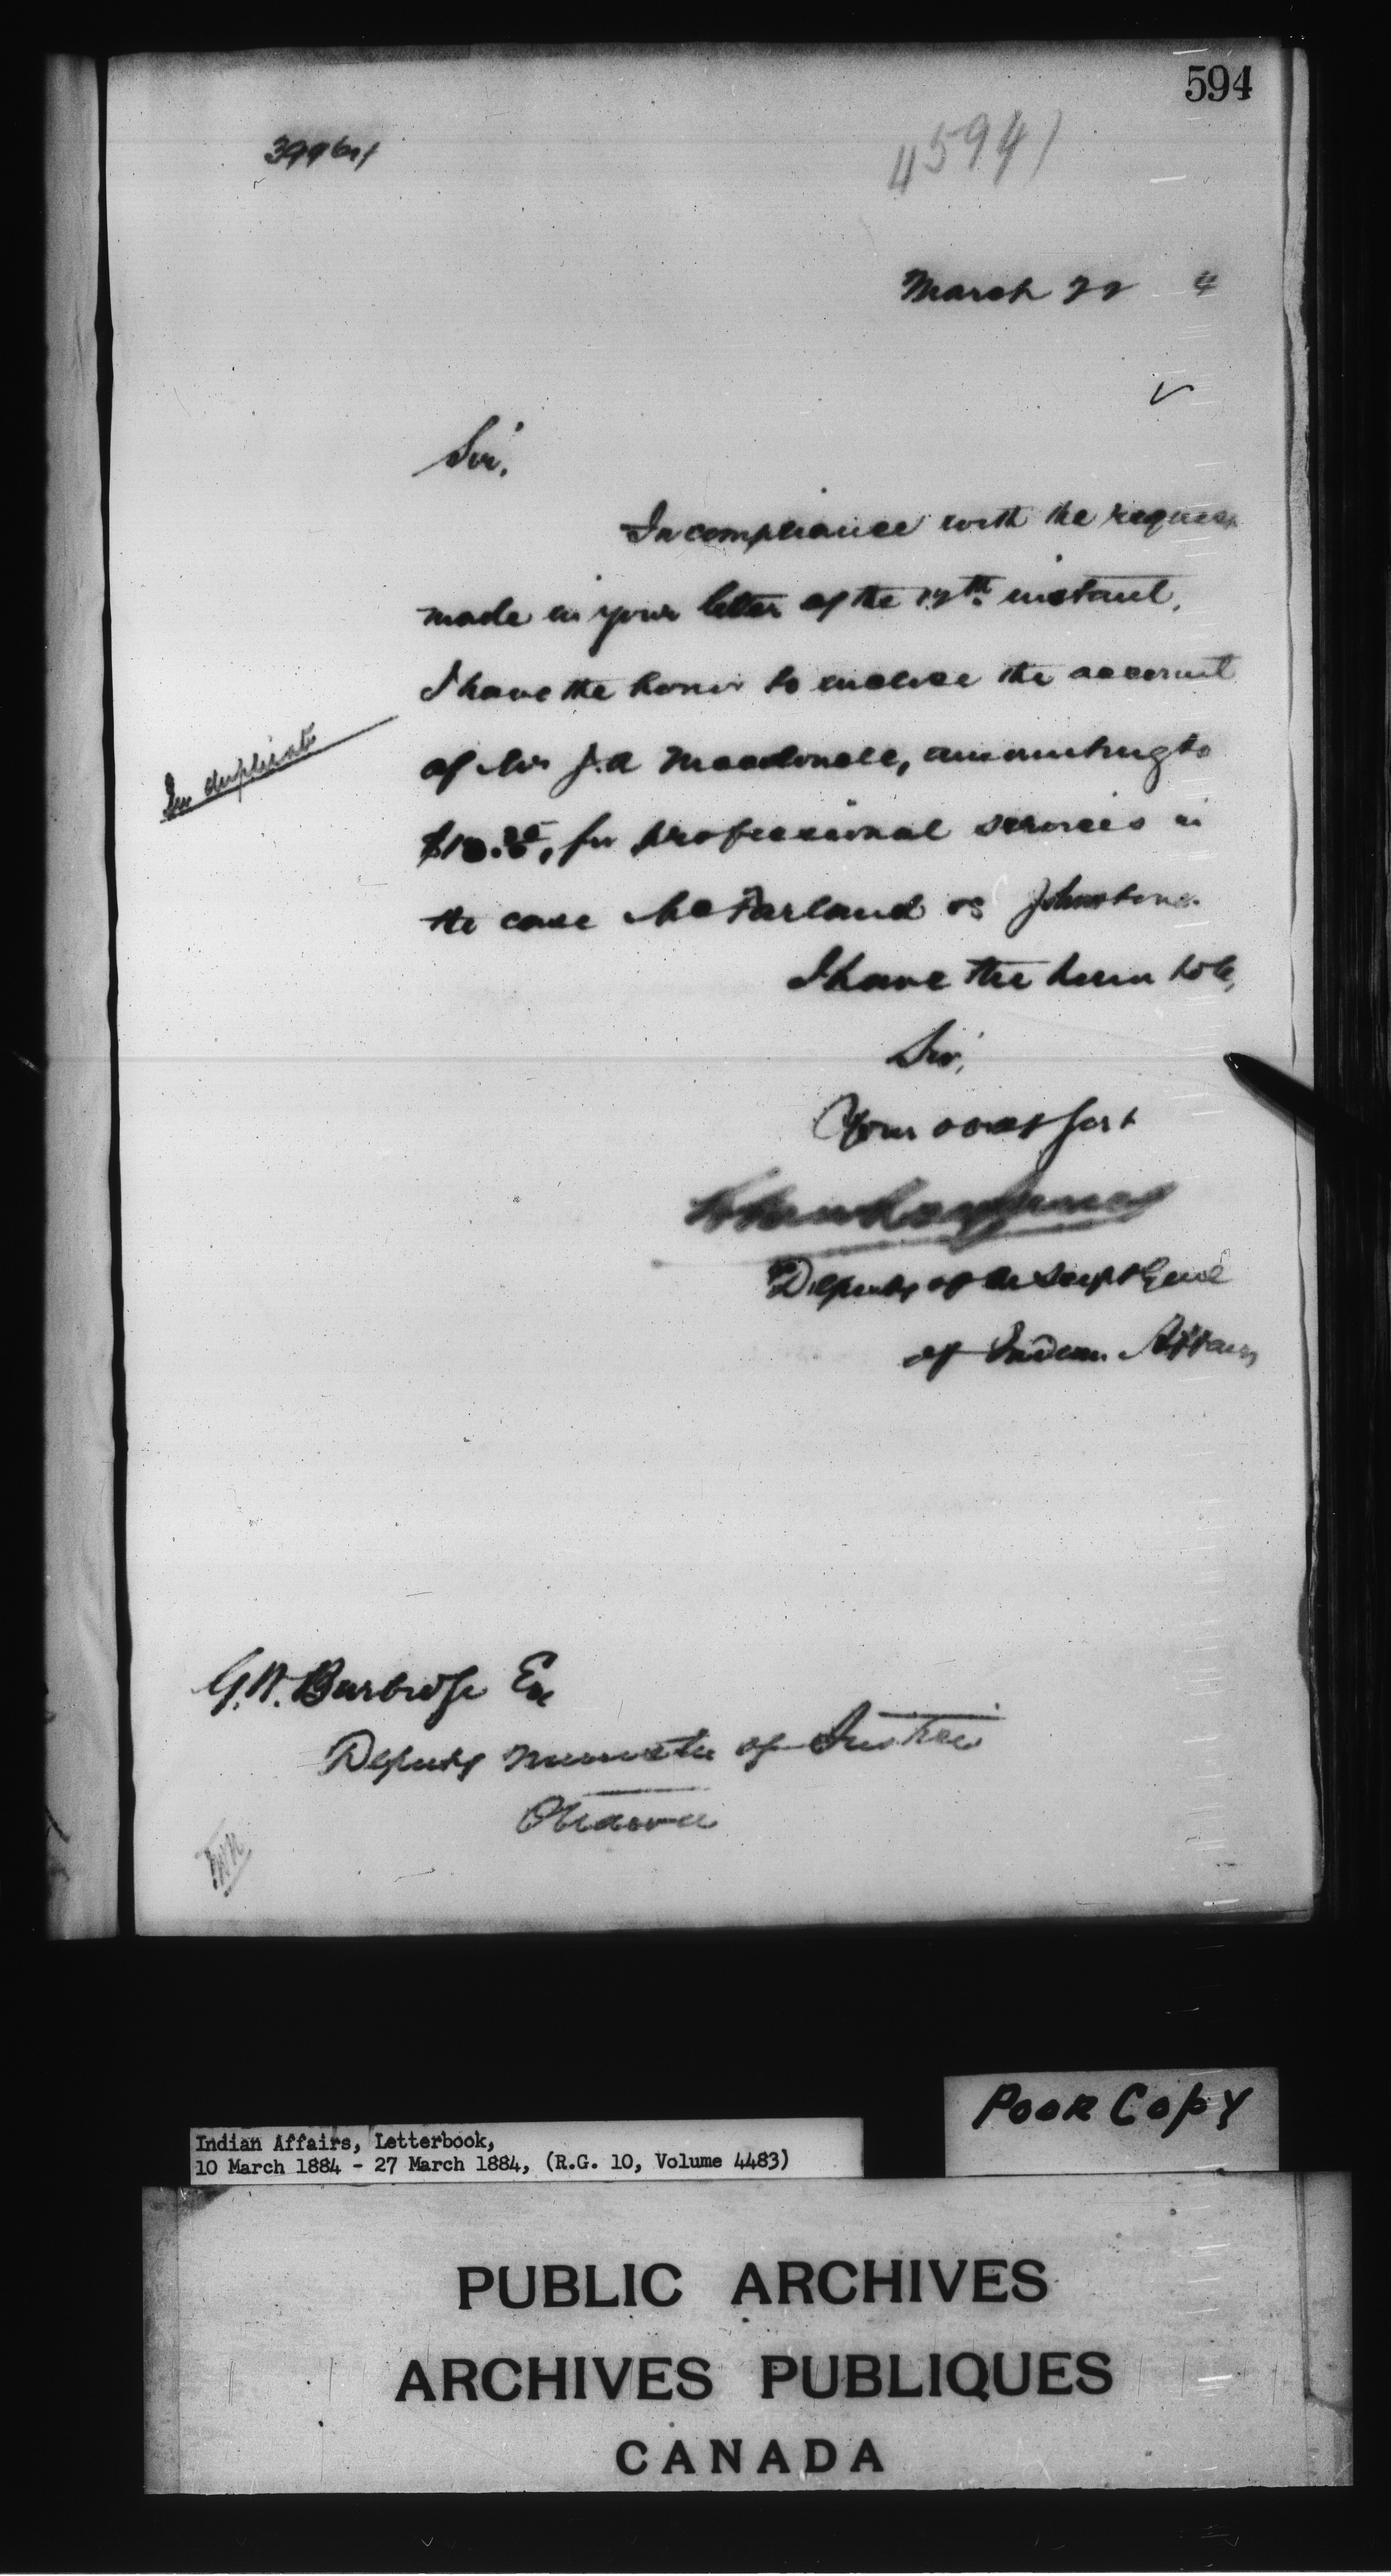 594
4594)
March 22 4
Sir,
In compliance with the request
made in your letter of the 17th instant,
I have the honor to enclose the account
of Mr J.A Macdonell, amounting to
In duplicate
for professional services in
the case McFarland vs Johnstone.
I have the honor to be,
Sir,
Your obedt Servt
Deputy of the Supt Genl
of Indian Affairs
G.W. Burbidge Esq
Deputy Minister of Justice
Ottawa
Poor Copy
Indian Affairs, Letterbook,
10 March 1884 - 27 March 1884, (R.G. 10, Volume 4483)
PUBLIC ARCHIVES
ARCHIVES PUBLIQUES
CANADA